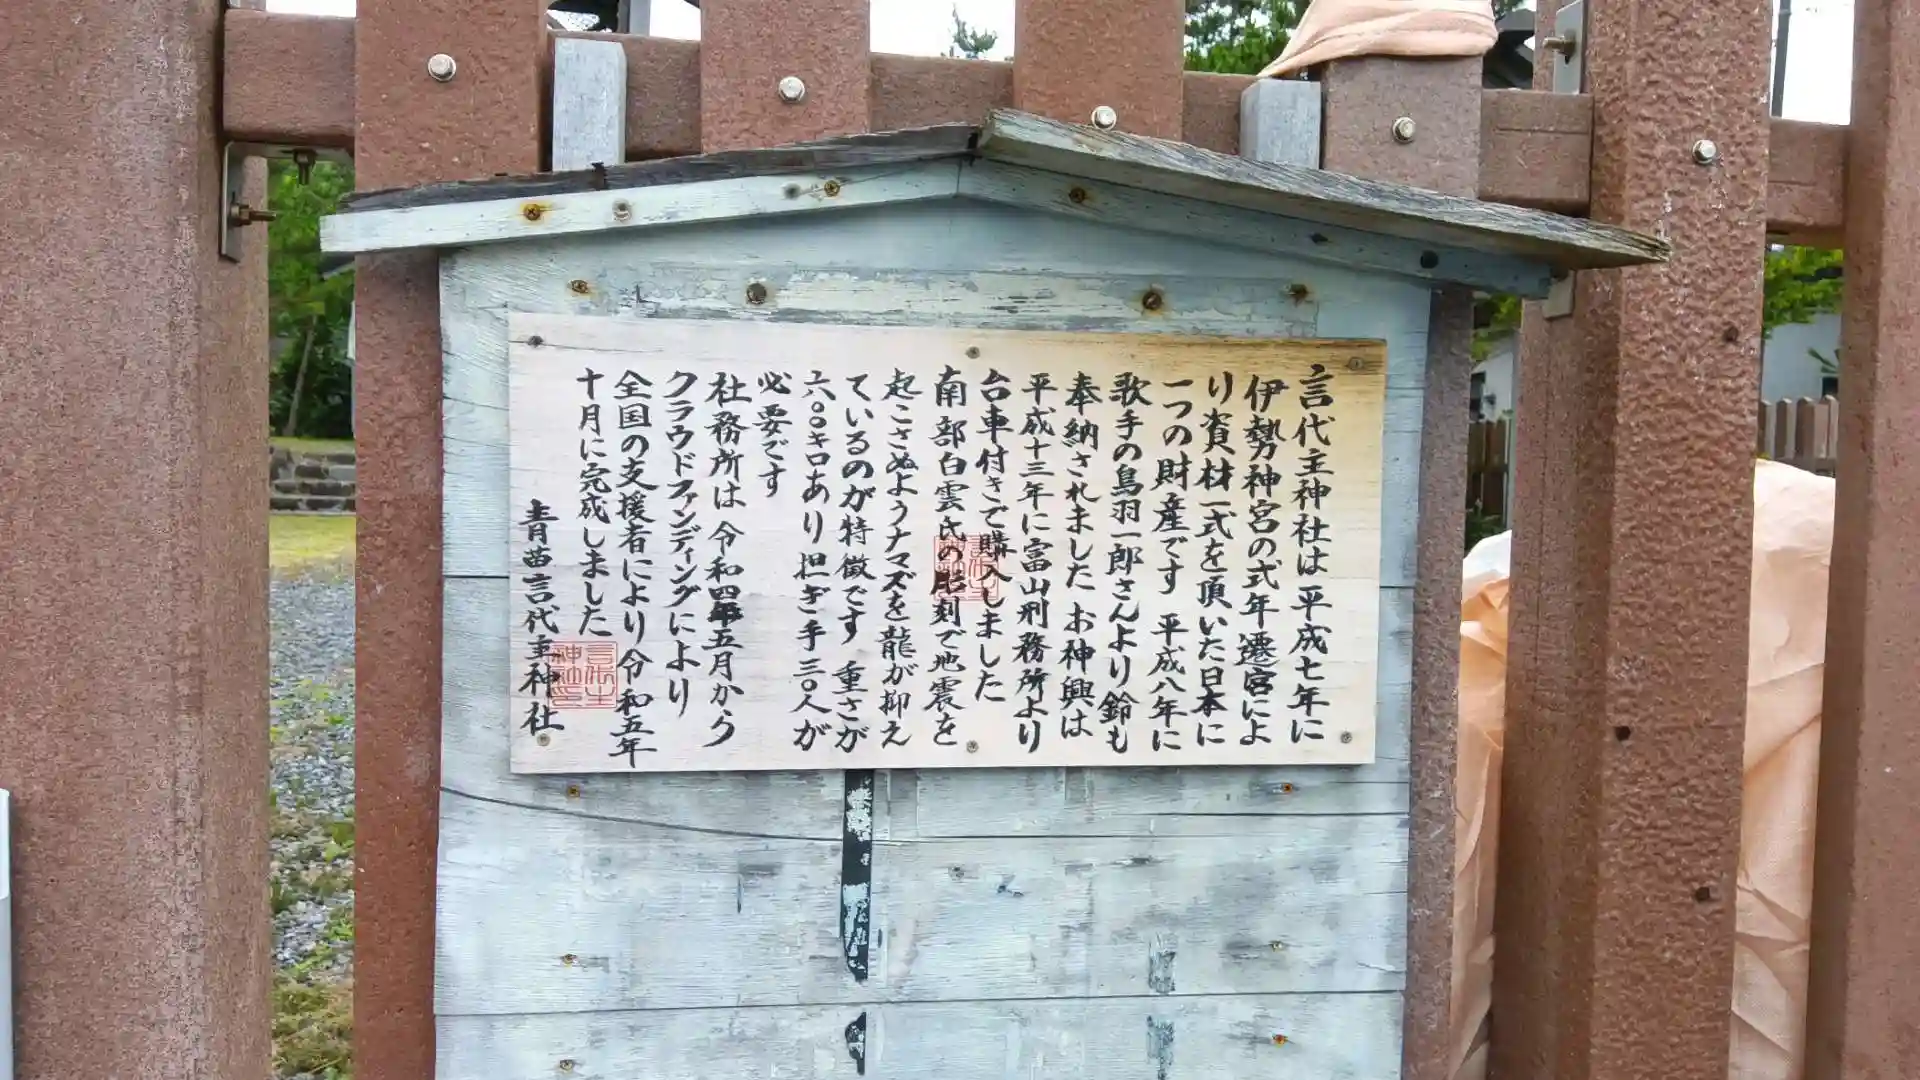 言代主神社は平成七年に
伊勢神宮の式年遷宮によ
り資材一式を頂いた日本に
一つの財産です 平成八年に
歌手の鳥羽一郎さんより鈴も
奉納されました お神輿は
平成十三年に富山刑務所より
台車付きで購入しました
南部白雲氏の彫刻で地震を
起こさぬようナマズを龍が抑え
ているのが特徴です 重さが
六〇〇キロあり担ぎ手三〇人が
必要です
社務所は令和四年五月から
クラウドファンディングにより
全国の支援者により令和五年
十月に完成しました
青苗言代主神社